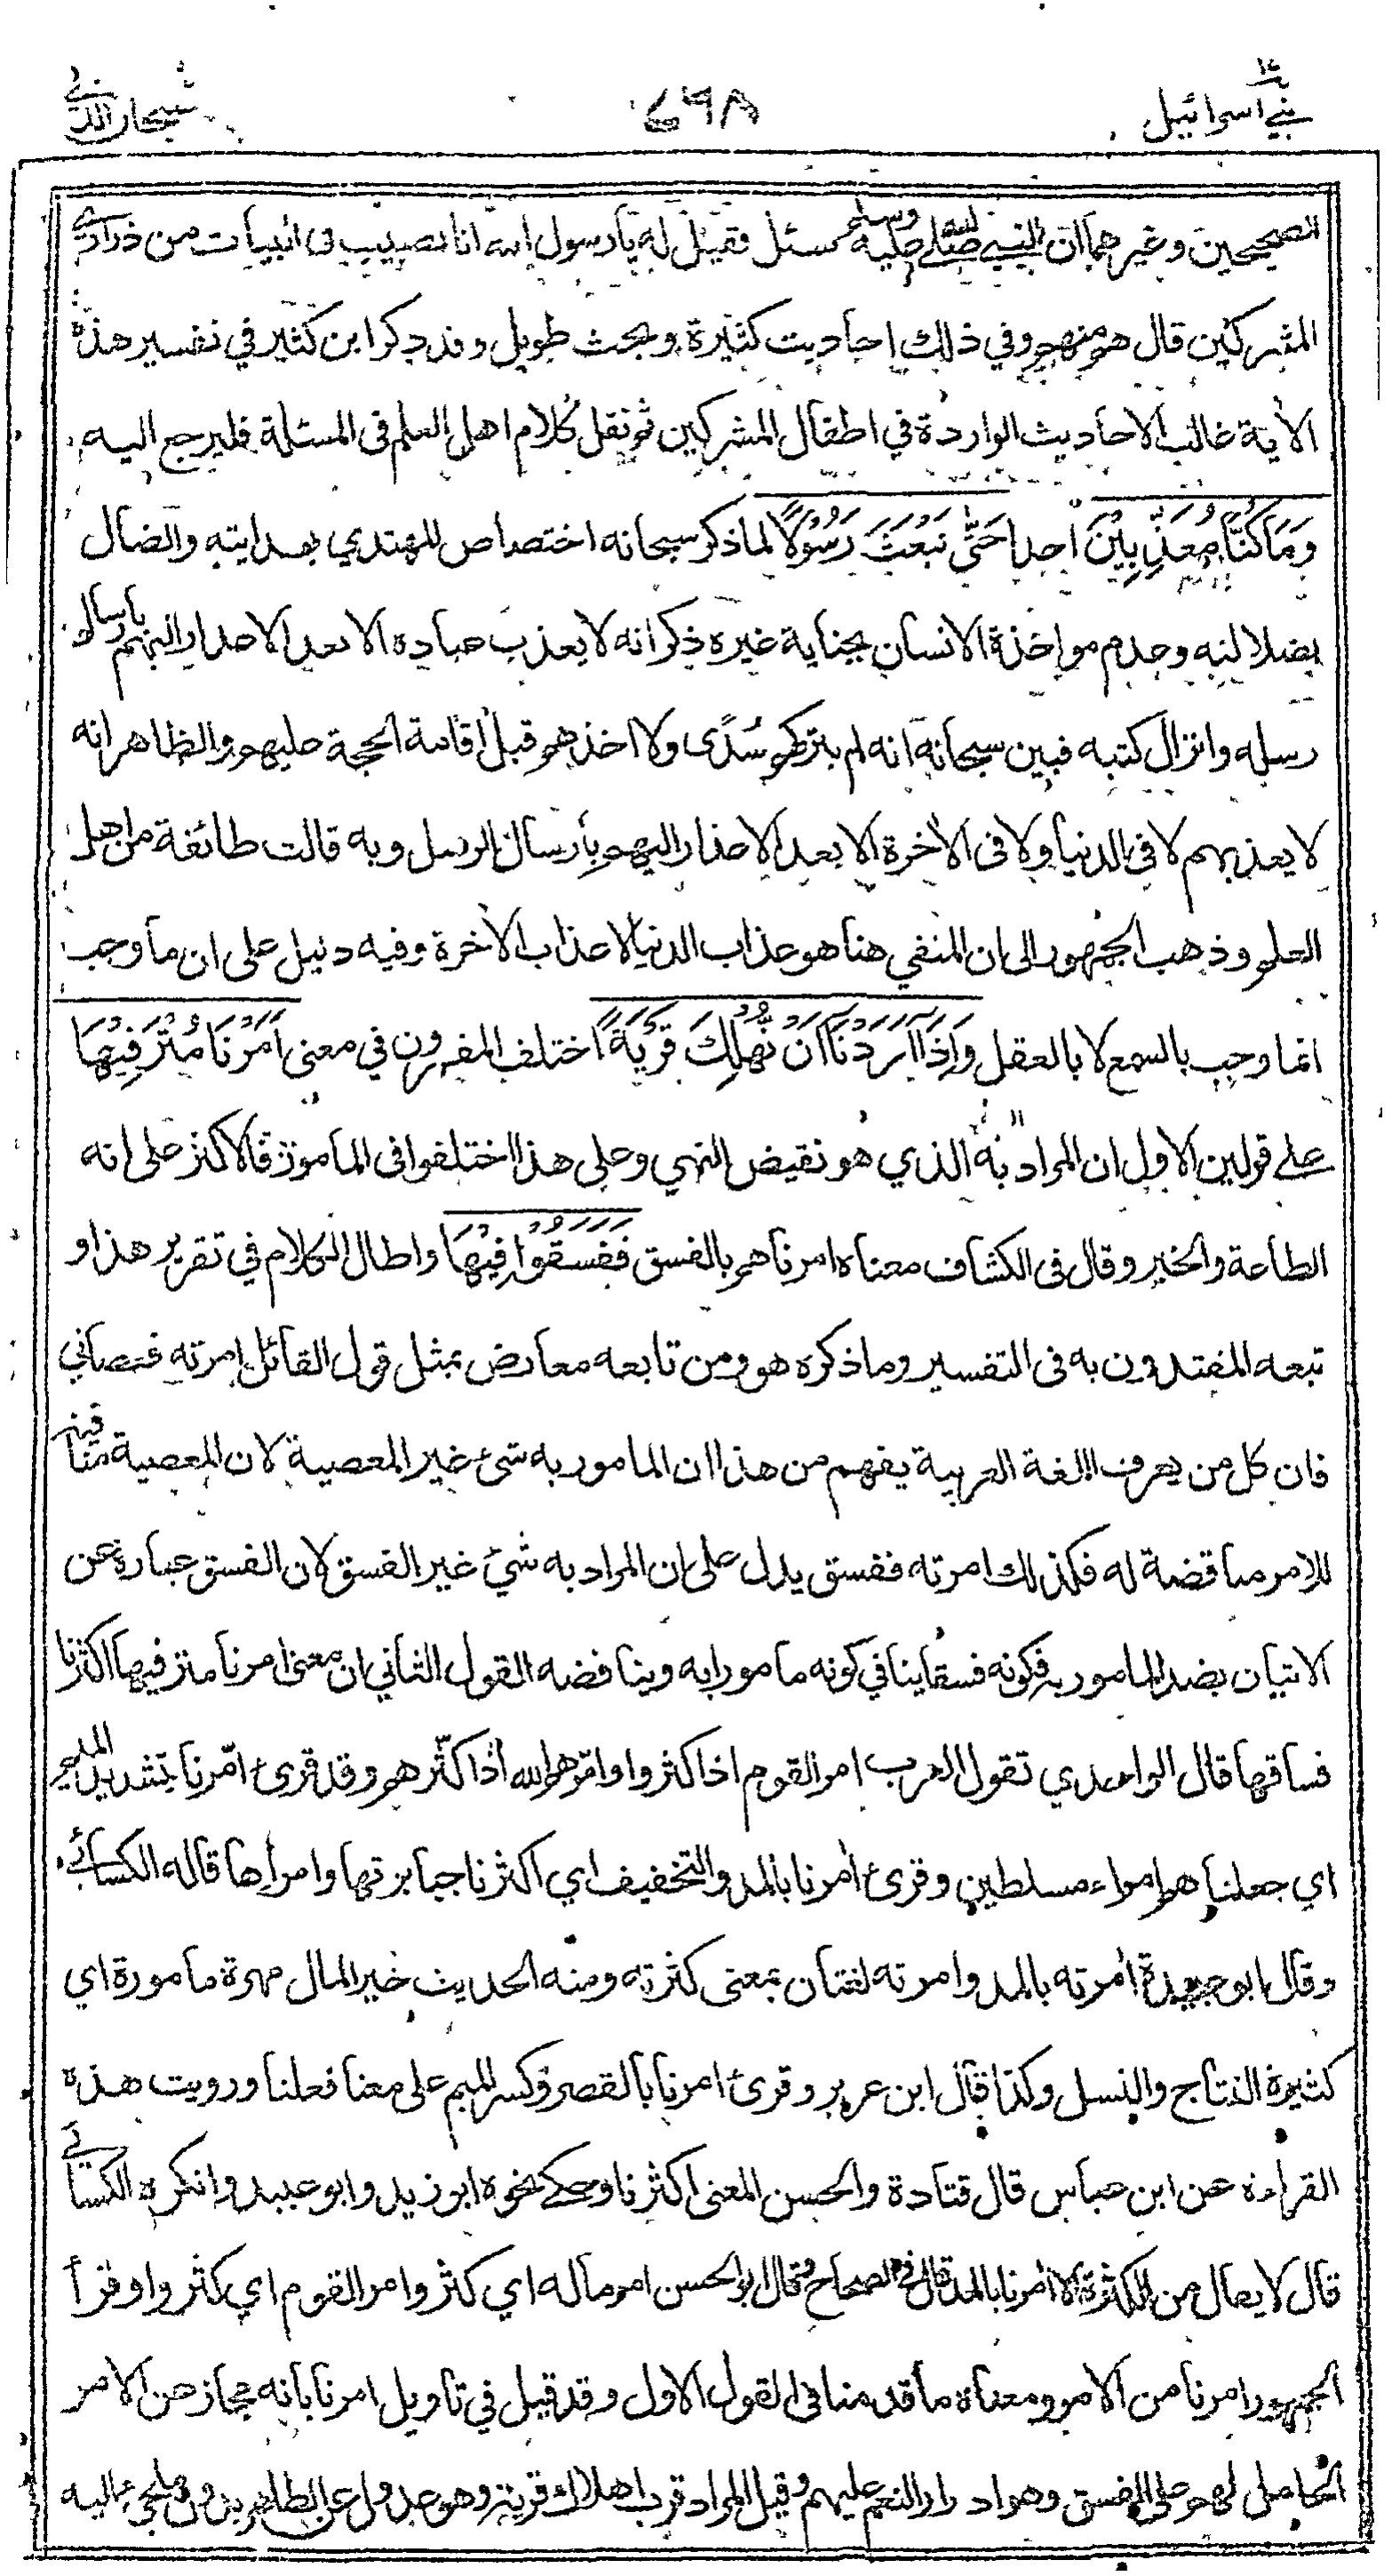 بني اسرائيل ١٧
٦٩٨
سبحان الذي
الصحيحين وغيرهما ان النبي صلى الله عليه وسلم سئل فقيل له يا رسول الله انا نصيب في البيات من ذراري
المشركين قال هم منهم وفي ذلك احاديث كثيرة وبحث طويل وقد ذكر ابن كثير في تفسير هذه
الاية غالب الاحاديث الواردة في اطفال المشركين ثم نقل كلام اهل العلم في المسئلة فليرجع اليه
وَمَا كُنَّا مُعَذِّبِيْنَ احدا حَتّٰى نَبْعَثَ رَسُوْلًا لما ذكر سبحانه اختصاص المهتدي بهدايته والضال
بضلالته وعدم مواخذة الانسان بجناية غيره ذكر انه لا يعذب عباده الا بعد الاعذار اليهم بارسال
رسله وانزال كتبه فبين سبحانه انه لم يتركهم سُدًى ولا اخذهم قبل اقامة الحجة عليهم والظاهر انه
لا يعذبهم لا في الدنيا ولا في الاخرة الا بعد الاعذار اليهم بارسال الرسل وبه قالت طائفة من اهل
العلم وذهب الجمهور الى ان المنفي هنا هو عذاب الدنيا لا عذاب الاخرة وفيه دليل على ان ما وجب
انما وجب بالسمع لا بالعقل وَاِذَا اَرَدْنَا اَنْ نُهْلِكَ قَرْيَةً اختلف المفسرون في معنى اَمَرْنَا مُتْرَفِيْهَا
على قولين الاول ان المراد به الذي هو نقيض النهي وعلى هذا اختلفوا في المامور به فالاكثر على انه
الطاعة والخير وقال في الكشاف معناه امرناهم بالفسق فَفَسَقُوْا فِيْهَا واطال الكلام في تقرير هذا و
تبعه المقتدون به في التفسير وما ذكره هو ومن تابعه معارض بمثل قول القائل امرته فعصاني
فان كل من يعرف اللغة العربية يفهم من هذا ان المامور به شئ غير المعصية لان المعصية منافية
للامر مناقضة له فكذلك امرته ففسق يدل على ان المراد به شيء غير الفسق لان الفسق عبارة عن
الاتيان بضد المامور به فكونه فسقا ينافي كونه مامورا به ويناقضه القول الثاني ان معنى امرنا مترفيها اكثرنا
فساقها قال الواحدي تقول العرب امر القوم اذا كثروا وامّرهم الله اذا كثّرهم وقد قرئ امّرنا بتشديد الميم
اي جعلناهم امراء مسلطين وقرئ اٰمرنا بالمد والتخفيف اي اكثرنا جبابرتها وامراءها قاله الكسائي
وقال ابو عبيدة اٰمرته بالمد وامرته لغتان بمعنى كثرته ومنه الحديث خير المال مهرة مامورة اي
كثيرة النتاج والنسل وكذا قال ابن عرير وقرئ امرنا بالقصر وكسر الميم على معنا فعلنا ورويت هذه
القراءة عن ابن عباس قال قتادة والحسن المعنى اكثرنا وحكى نحوه ابو زيد وابو عبيد وانكره الكسائي
قال لا يقال من الكثرة الا اٰمرنا بالمد قال في الصحاح وقال ابو الحسن امر ماله اي كثر وامر القوم اي كثروا وقرأ
الجمهور امرنا من الامر ومعناه ما قدمنا في القول الاول وقد قيل في تاويل امرنا بانه مجاز عن الامر
الحامل لهم على الفسق وهو ادرار النعم عليهم وقيل المراد قرب اهلاك قرية وهو عدول عن الظاهر بدون ملجئ اليه